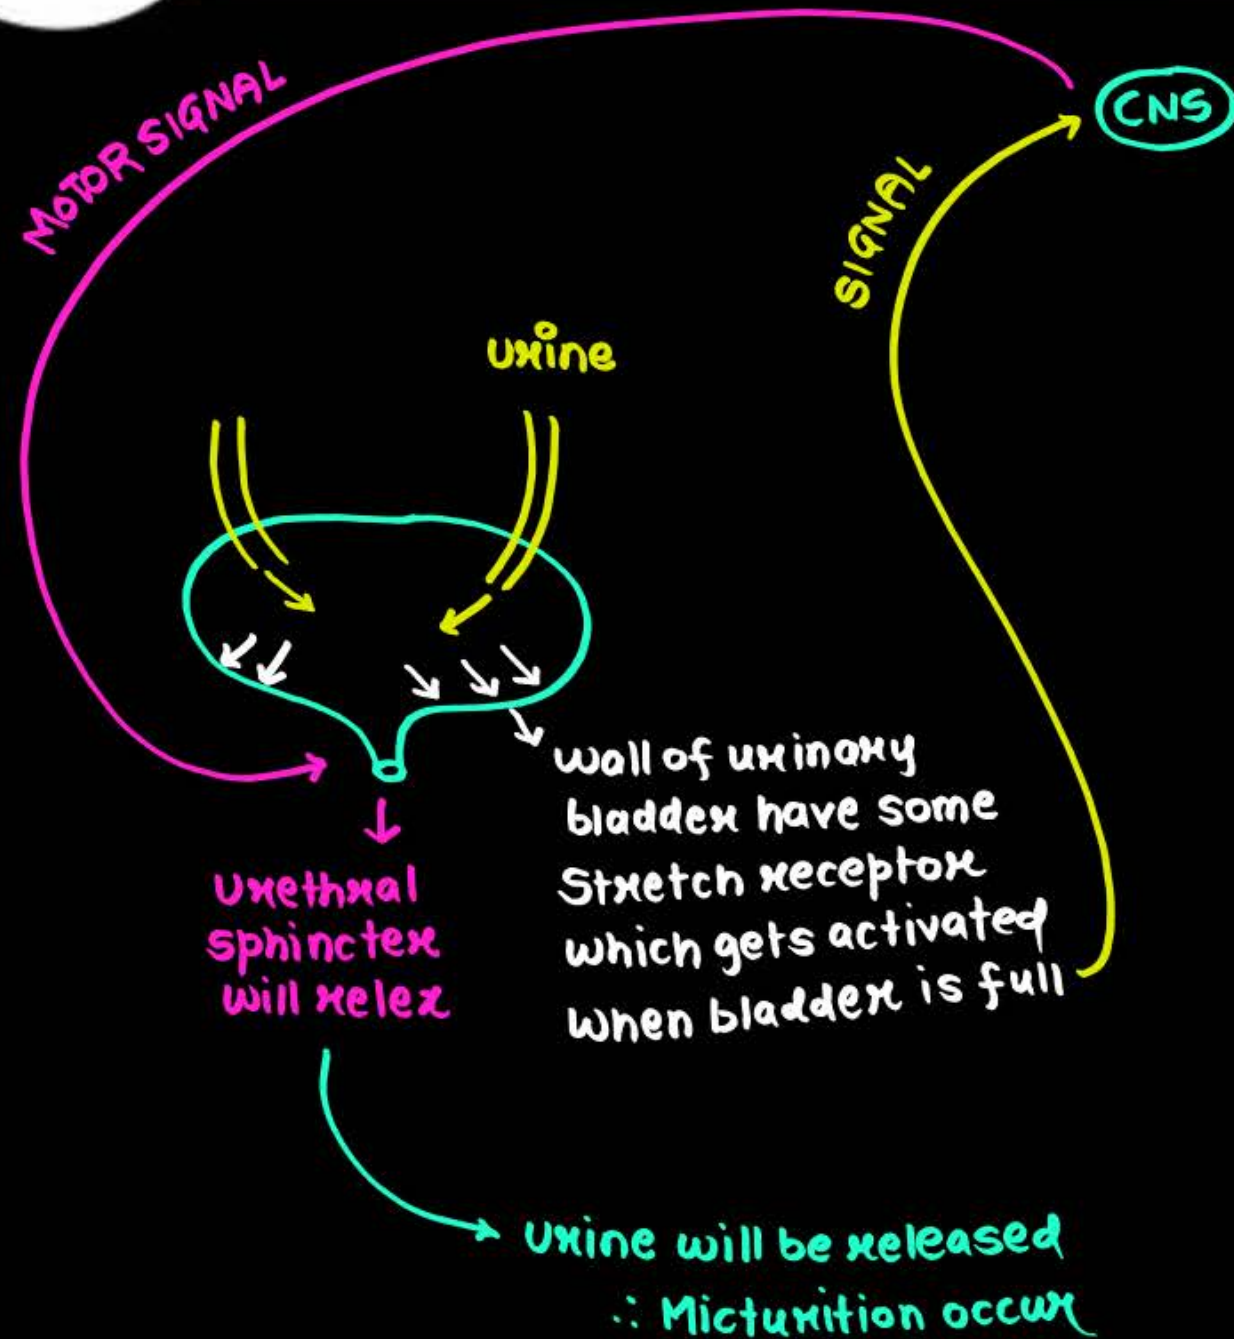 MOTOR SIGNAL
CNS
SIGNAL
urine
wall of urinary
bladder have some
Stretch receptor
which gets activated
when bladder is full
Urethral
sphincter
will relex
urine will be released
∴ Micturition occur